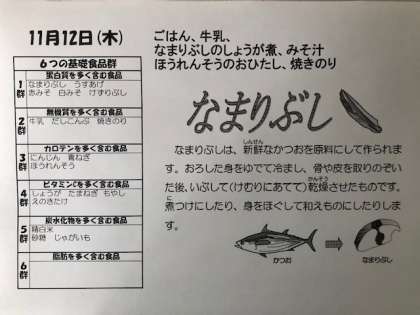 11月12日(木)
ごはん、牛乳、
なまりぶしのしょうが煮、みそ汁
ほうれんそうのおひたし、焼きのり
6つの基礎食品群
1群
蛋白質を多く含む食品
なまりぶし うすあげ
赤みそ 白みそ けずりぶし
2群
無機質を多く含む食品
牛乳 だしこんぶ 焼きのり
3群
カロテンを多く含む食品
にんじん 青ねぎ
ほうれんそう
4群
ビタミンCを多く含む食品
しょうが たまねぎ もやし
えのきたけ
5群
炭水化物を多く含む食品
精白米
砂糖 じゃがいも
6群
脂肪を多く含む食品
なまりぶし
なまりぶしは、新鮮なかつおを原料にして作られま
しんせん
す。おろした身をゆでて冷まし、骨や皮を取りのぞい
た後、いぶして(けむりにあてて)乾燥させたものです。
かんそう
煮つけにしたり、身をほぐして和えものにしたりしま
に
す。
かつお
なまりぶし